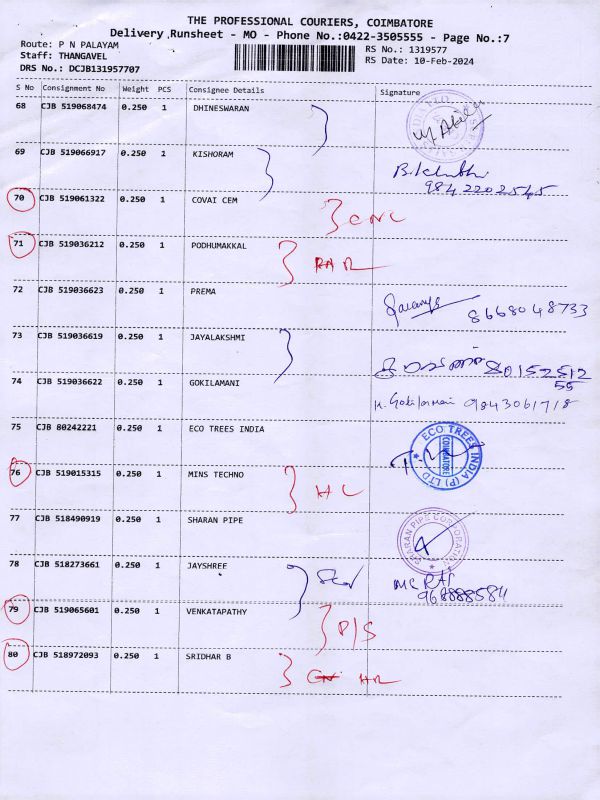 THE PROFESSIONAL COURIERS, COIMBATORE
Delivery Runsheet - MO - Phone No.:0422-3505555 - Page No.:7
Route: P N PALAYAM
Staff: THANGAVEL
DRS No.: DCJB131957707
RS No.: 1319577
RS Date: 10-Feb-2024
S No Consignment No Weight PCS Consignee Details Signature
68 CJB 519068474 0.250 1 DHINESWARAN
69 CJB 519066917 0.250 1 KISHORAM
9842202545
70 CJB 519061322 0.250 1 COVAI CEM
71 CJB 519036212 0.250 1 PODHUMAKKAL
72 CJB 519036623 0.250 1 PREMA
8668048733
73 CJB 519036619 0.250 1 JAYALAKSHMI
74 CJB 519036622 0.250 1 GOKILAMANI
K. Gokilamani 9843061718
75 CJB 80242221 0.250 1 ECO TREES INDIA
ECO TREES INDIA (P) LTD COIMBATORE
76 CJB 519015315 0.250 1 MINS TECHNO
HL
77 CJB 518490919 0.250 1 SHARAN PIPE
SHARAN PIPE CORPORATION
78 CJB 518273661 0.250 1 JAYSHREE
79 CJB 519065601 0.250 1 VENKATAPATHY
P/S
80 CJB 518972093 0.250 1 SRIDHAR B